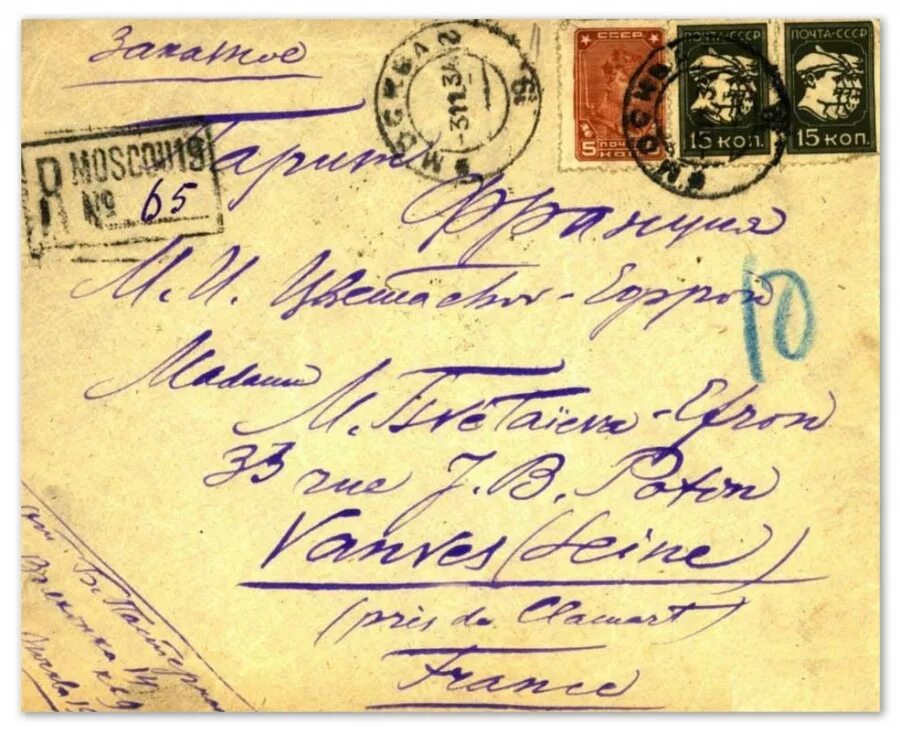 Заказное
МОСКВА
СССР
5 ПОЧТА КОП.
ПОЧТА-СССР
15 КОП.
ПОЧТА-СССР
15 КОП.
R MOSCOU 19
№ 65
Париж
Франция
М. И. Цветаевой-Еффрон
10
Madame
M. Tsvétaïeva-Efron
33 rue J. B. Potin
Vanves (Seine)
(près de Clamart)
France
от Б. Пастернак
Волхонка 14
Москва 19